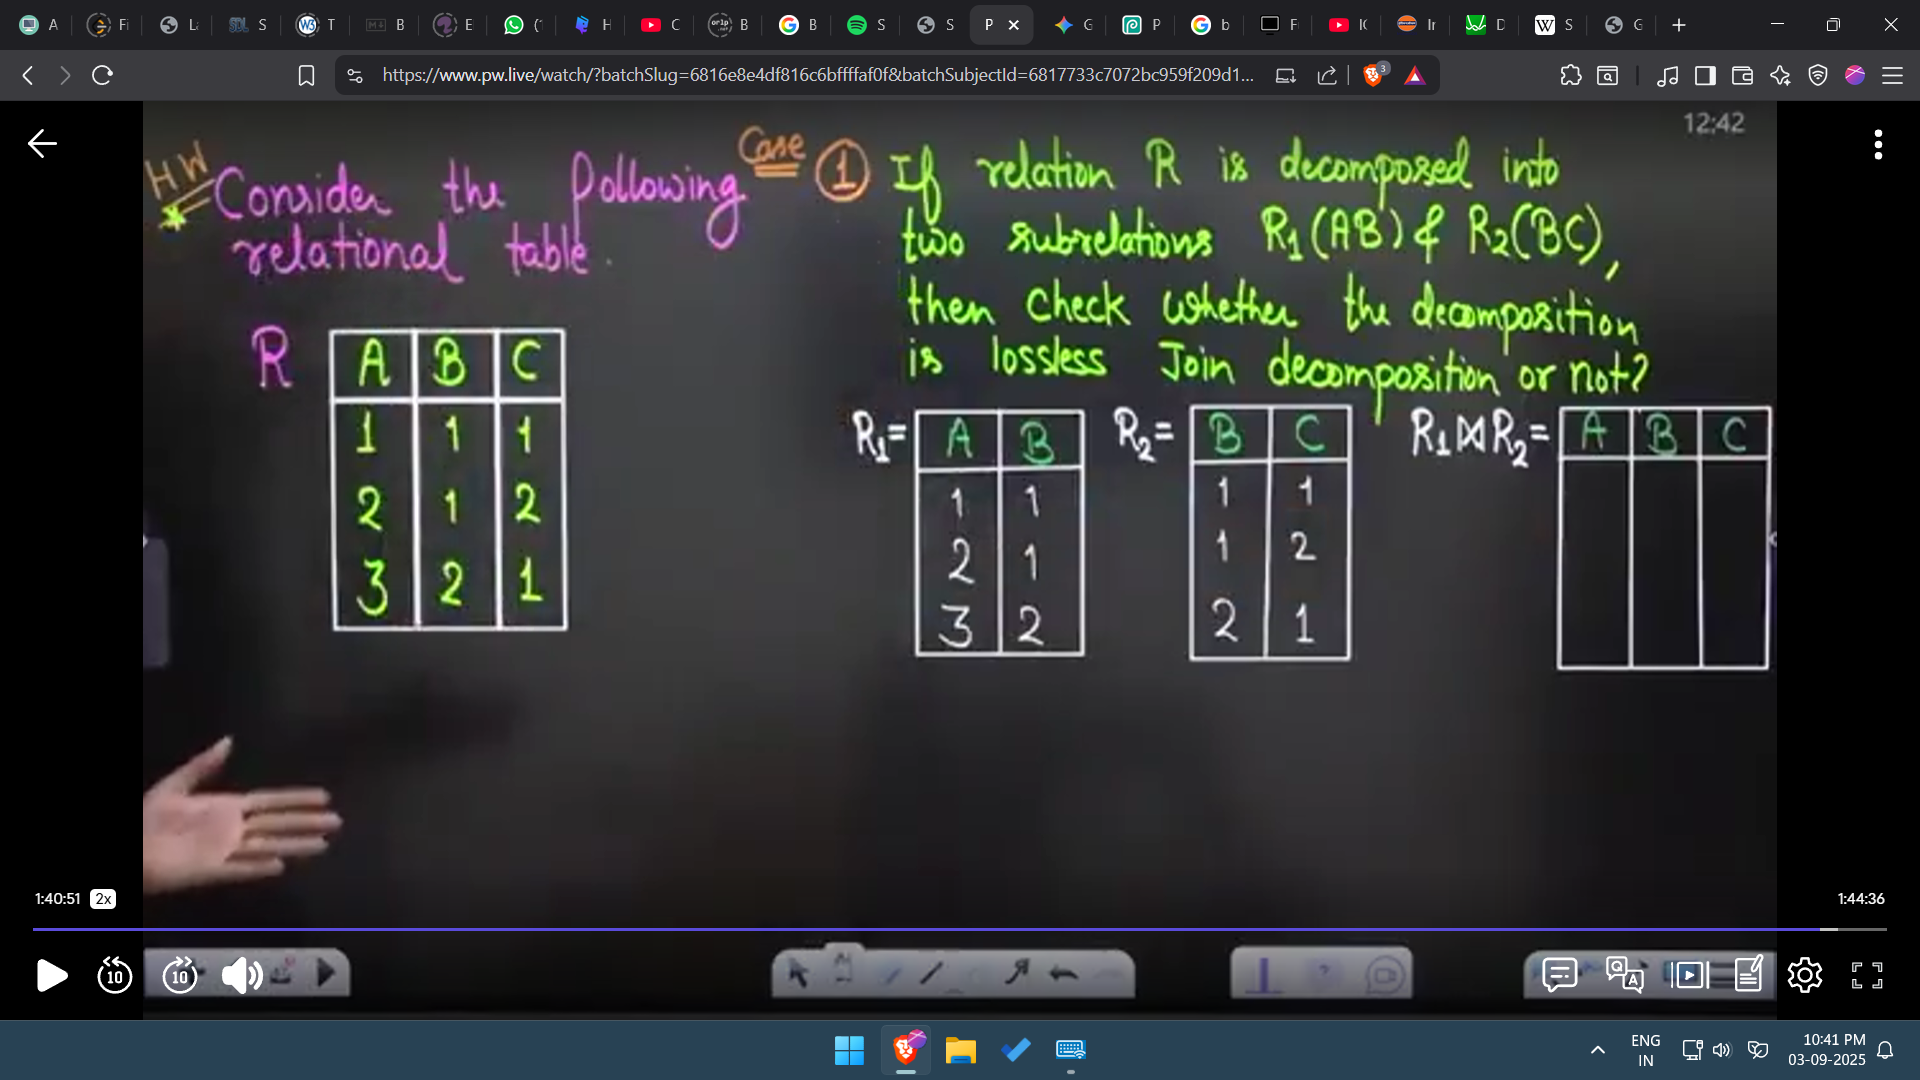 A
Fi
La
S
T
B
E
(1
H
C
B
B
S
S
P
G
P
b
F
IC
Ir
D
S
G
https://www.pw.live/watch/?batchSlug=6816e8e4df816c6bffffaf0f&batchSubjectId=6817733c7072bc959f209d1...
3
12:42
HW
Consider the following
relational table.
R
A B C
1 1 1
2 1 2
3 2 1
Case 1 If relation R is decomposed into
two subrelations R1(AB) & R2(BC),
then check whether the decomposition
is lossless Join decomposition or not?
R1=
A B
1 1
2 1
3 2
R2=
B C
1 1
1 2
2 1
R1⋈R2=
A B C
1:40:51 2x
1:44:36
10
10
ENG
IN
10:41 PM
03-09-2025